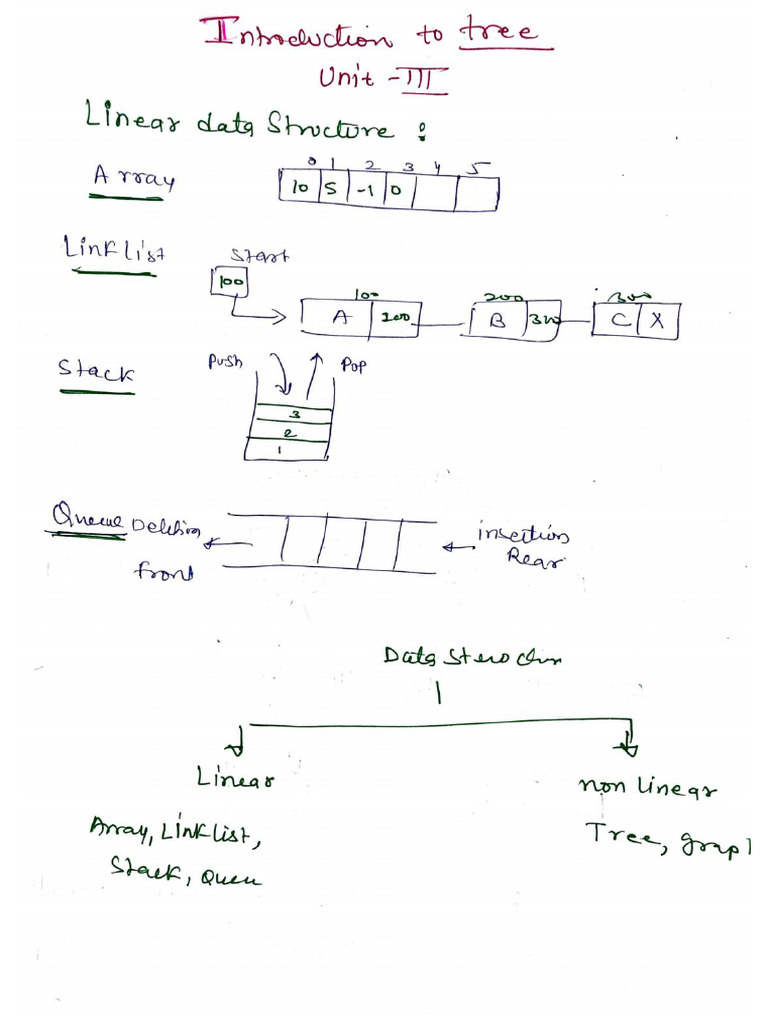 Introduction to tree
Unit - III
Linear data Structure :
Array
0 1 2 3 4 5
10 5 -1 0
Link list
Start
100
100 200 300
A 200 B 300 C X
Stack
Push Pop
3
2
1
Queue Deletion
front
insertion
Rear
Data
Linear
non linear
Array, Link list,
Stack, Queu
Tree, grap